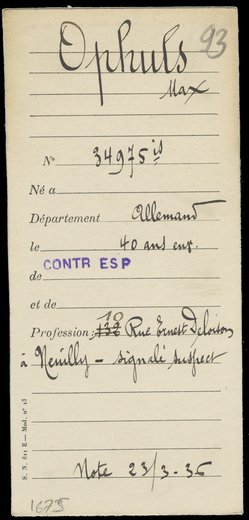 93
Ophuls
Max
N° 34975 is
Né a
Département Allemand
le 40 ans env.
CONTR ESP
de
et de
Profession : 132 10 Rue Ernest Deloison
à Neuilly — signalé suspect
Note 23/3-36
S. N. 611 E — Mod. n° 13
1675